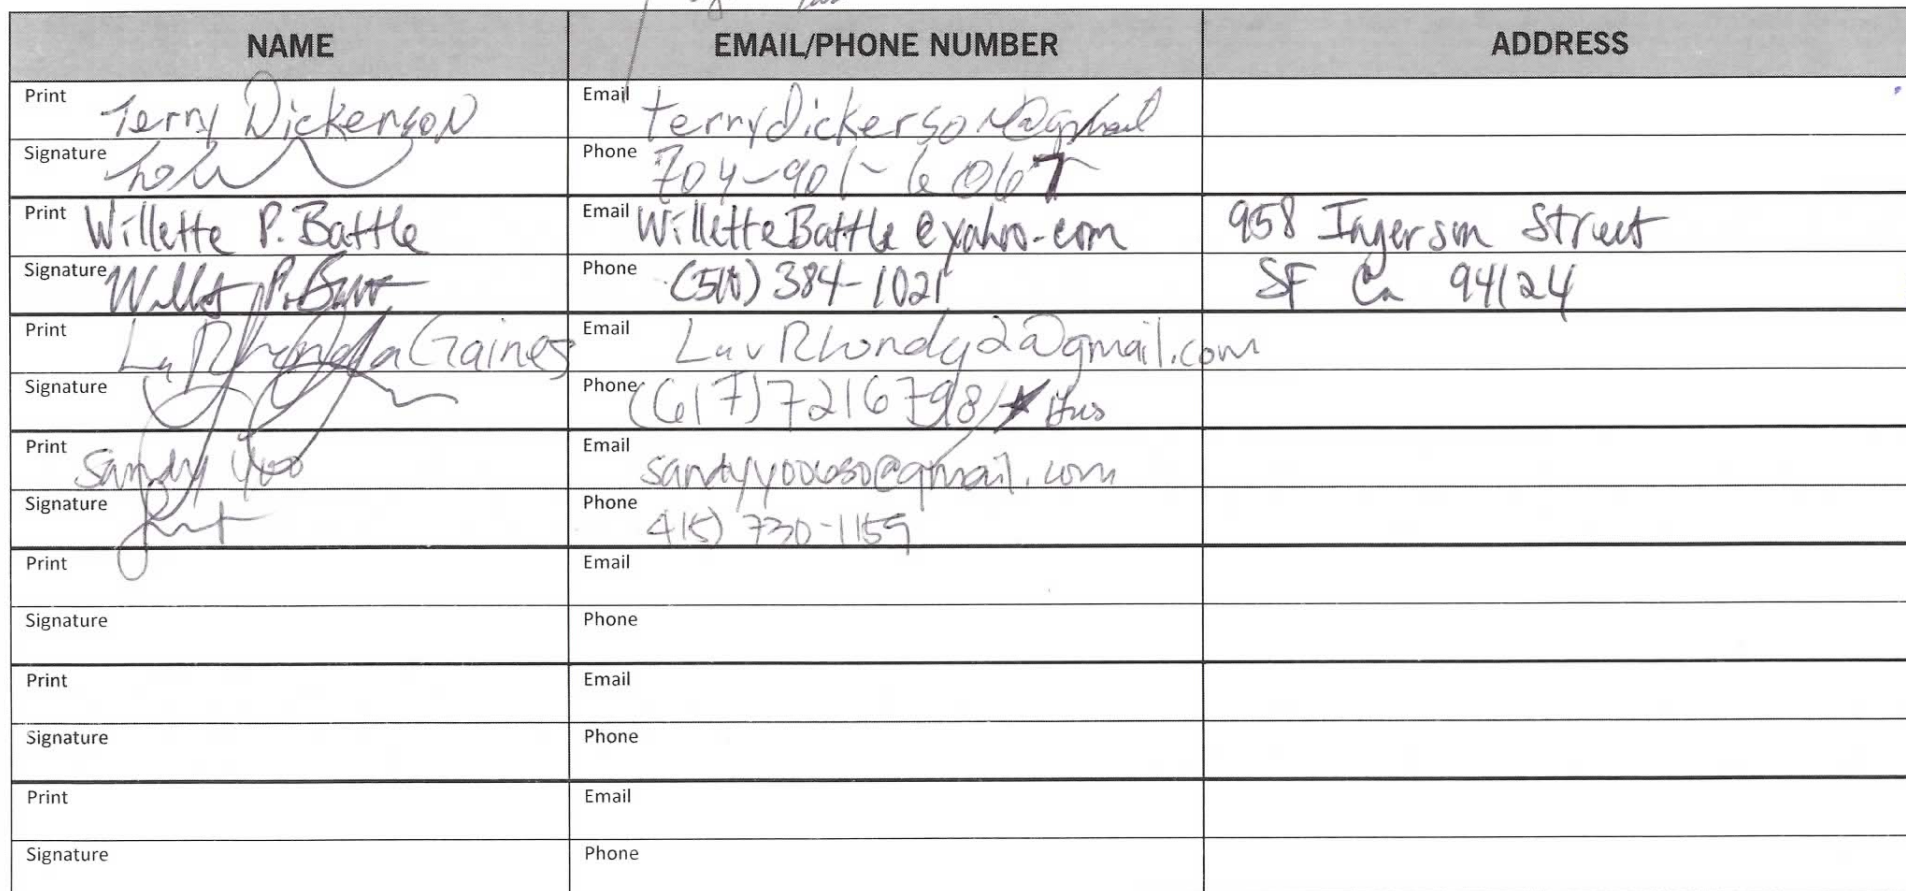 NAME EMAIL/PHONE NUMBER ADDRESS
Print Terry Dickerson Email terrydickerson@gmail
Signature Phone 704-901-6067
Print Willette P. Battle Email WilletteBattle@yahoo.com 958 Ingerson Street
Signature Phone (510) 384-1021 SF Ca 94124
Print LaRhonda Gaines Email LuvRhondy2@gmail.com
Signature Phone (617)7216798
Print Sandy Yoo Email
Signature Phone 415) 730-1159
Print Email
Signature Phone
Print Email
Signature Phone
Print Email
Signature Phone